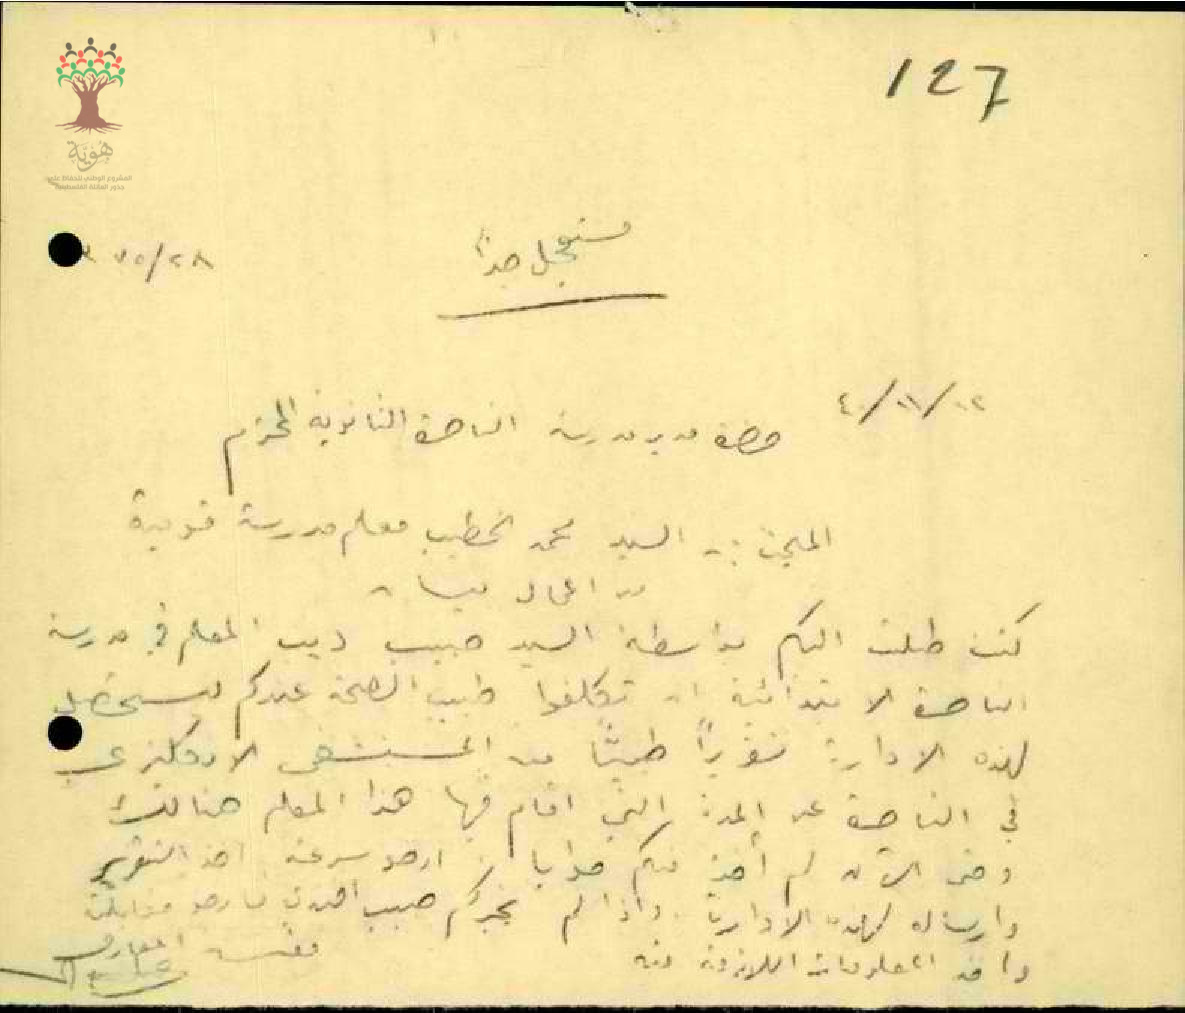 127
هوية
المشروع الوطني للحفاظ على
جذور العائلة الفلسطينية
مستعجل جداً
٧٥/٢٨
٤٠/١١/١٢
حضرة مدير مدرسة الناصرة الثانوية المحترم
المبحث :- السيد محمد الخطيب معلم مدرسة قومية
من اعمال بيسان
كنت طلبت اليكم بواسطة السيد حبيب ديب المعلم في مدرسة
الناصرة الابتدائية ان تكلفوا طبيب الصحة عندكم ليستحصل
لهذه الادارة تقريراً طبياً من المستشفى الانكليزي
في الناصرة عن المدة التي اقام فيها هذا المعلم هنالك
وحتى الآن لم أخذ منكم جوابا . ارجو سرعة اخذ التقرير
وارساله لهذه الادارة . واذا لم يخبركم حبيب افندي فارجو مقابلته
واخذ المعلومات اللازمة منه
مفتش المعارف